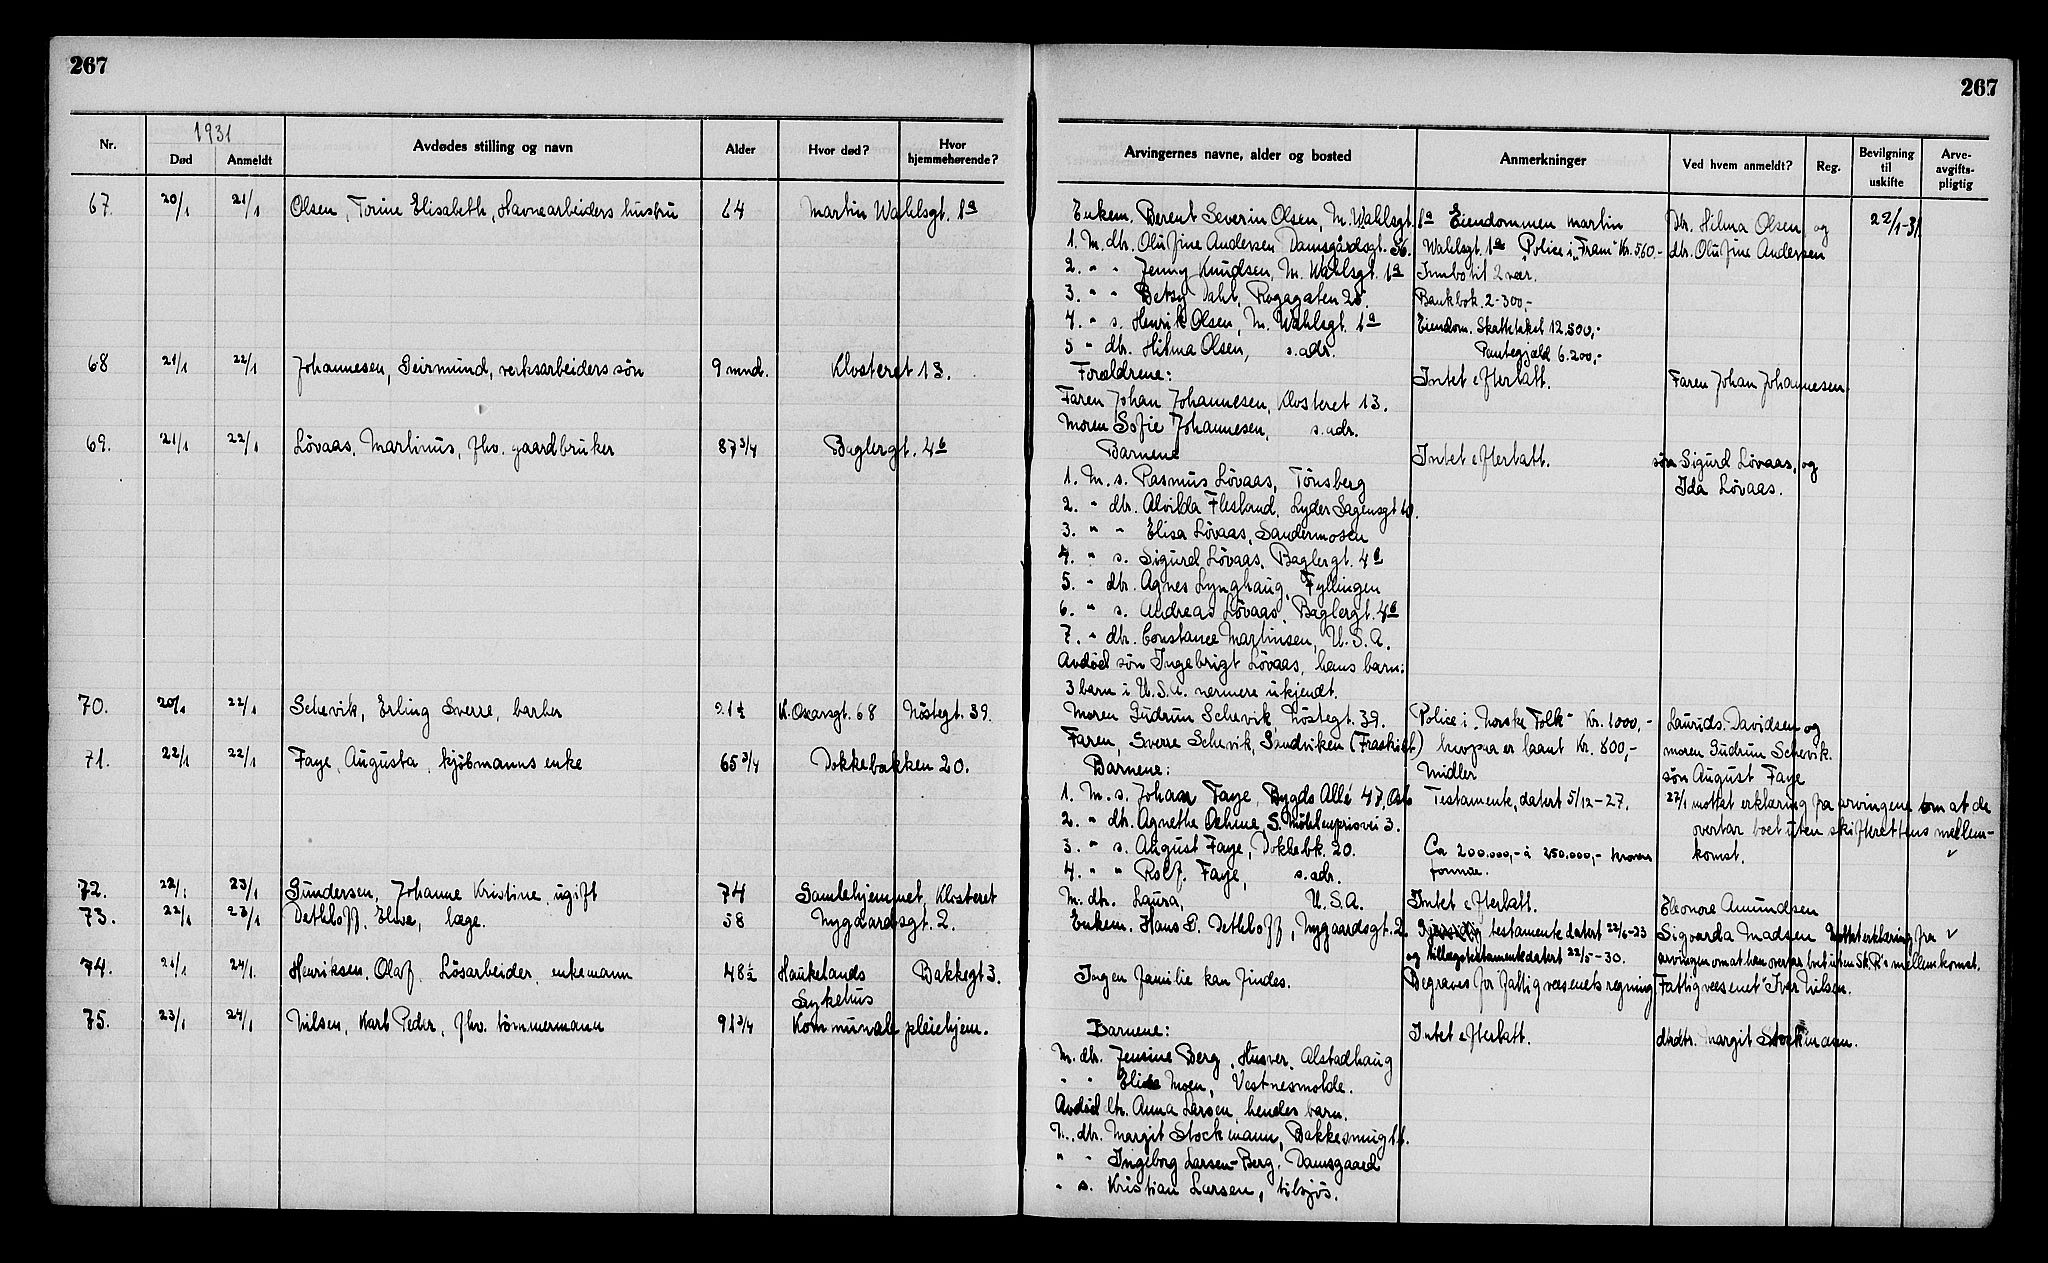 267
267
Nr.
1931
Død
Anmeldt
Avdødes stilling og navn
Alder
Hvor død?
Hvor hjemmehørende?
Arvingernes navne, alder og bosted
Anmerkninger
Ved hvem anmeldt?
Reg.
Bevilgning til uskifte
Arveavgiftspligtig
67. 20/1 21/1 Olsen, Torine Elisabeth, Havnearbeiders hustru 64 Martin Wahlsgt. 1a
Enkem. Berent Severin Olsen, M. Wahlsgt. 1a Eiendommen Martin Dtr. Hilma Olsen og 22/1-31
1. M. dtr. Olufine Andersen Damsgårdsgt. 86. Wahlsgt. 1a Police i "Fram" Kr. 560.- dtr. Olufine Andersen
2. " " Jenny Knudsen, M. Wahlsgt. 1a Innbo til 2 vær.
3. " " Betsy Dahl, Rogagaten 28. Bankbok. 2-300,-
4. " s. Henrik Olsen, M. Wahlsgt. 1a Eiendom. Skattetakst 12.500,-
5 " dtr. Hilma Olsen, s. adr. Pantegjæld 6.200,-
68 21/1 22/1 Johannesen, Geirmund, verksarbeiders søn 9 mnd. Klosteret 13.
Forældrene: Intet efterlatt. Faren Johan Johannesen
Faren Johan Johannesen, Klosteret 13.
Moren Sofie Johannesen, s. adr.
69. 21/1 22/1 Lövaas, Martinus, fhv. gaardbruker 87 3/4 Baglergt. 4b
Barnene Intet efterlatt. søn Sigurd Lövaas, og
1. M. s. Rasmus Lövaas, Tönsberg Ida Lövaas.
2. " dtr. Alvilda Flesland, Lyder Sagensgt 10.
3. " " Elisa Lövaas, Sandermosen
4. " s. Sigurd Lövaas, Baglergt. 4b
5. " dtr. Agnes Lynghaug, Fyllingen
6. " s. Andreas Lövaas, Baglergt. 4b
7. " dtr. Constance Martinsen, U.S.A.
Avdöd søn Ingebrigt Lövaas, hans barn:
3 barn i U.S.A. nærmere ukjendt.
70. 20/1 22/1 Schevik, Erling Sverre, barber 21 1/2 K. Oscarsgt. 68 Nöstegt. 39.
Moren Gudrun Schevik, Nöstegt. 39. Police i "Norske Folk" Kr. 1000,- Laurids Davidsen og
Faren, Sverre Schevik, Sandviken (Fraskilt) hvorpaa er laant Kr. 800,- moren Gudrun Schevik.
71. 22/1 22/1 Faye, Augusta, kjöbmanns enke 65 3/4 Dokkebakken 20.
Barnene: Midler søn August Faye
1. M. s. Johan Faye, Bygdö Allé 47, Oslo Testamente, datert 5/12-27. 22/1 mottat erklæring fra arvingene om at de
2. " dtr. Agnethe Oehme, S. Möhlenprisvei 3. overtar boet uten skifterettens mellem-
3. " s. August Faye, Dokkebk. 20. Ca 200.000,- à 250.000,- kroners komst.
4. " " Rolf Faye, s. adr. formue.
72. 22/1 23/1 Gundersen, Johanne Kristine, ugift 74 Samlehjemmet, Klosteret
M. dtr. Laura, U.S.A. Intet efterlatt. Eleonore Amundsen
73. 22/1 23/1 Dethloff, Elna, læge. 58 Nygaardsgt. 2.
Enkem. Hans G. Dethloff, Nygaardsgt. 2. testamente datert 22/6-23 Sigvarda Madsen Mottat erklæring fra
og tillægstestamente datert 22/5-30. arvingen om at han overtar boet uten Sk. R's mellemkomst.
74. 21/1 24/1 Henriksen, Olaf, Lösarbeider, enkemann 48 1/2 Haukelands Sykehus Bakkegt 3.
Ingen familie kan findes. Begraves for fattigvæsenets regning Fattigvæsenet Iver Nilsen.
75. 23/1 24/1 Nilsen, Karl Peder, fhv. tömmermann 91 3/4 Kommunale pleiehjem.
Barnene: Intet efterlatt. dtrdtr. Margit Stockmann.
M. dtr. Jensine Berg, Husvær, Alstadhaug
" " Elise Moen, Vestnesmolde.
Avdöd dtr. Anna Larsen, hendes barn.
M. dtr. Margit Stockmann, Bakkesmug
" " Ingeborg Larsen-Berg, Damsgaard
" s. Kristian Larsen, tilsjös.